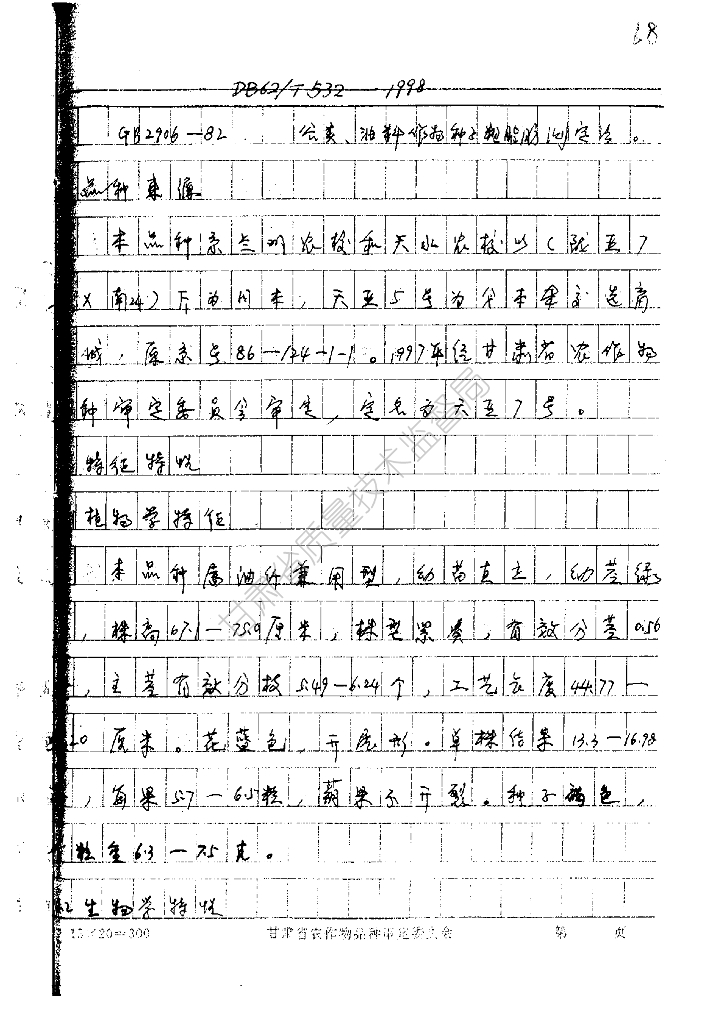 68
DB62/T 532—1998
GB2906—82 谷类、油料作物种子粗脂肪测定法。
品种来源
本品种系兰州农校和天水农校以(陇亚7
×南24)F 为母本,天亚5号为父本杂交选育
成,原系号86—124-1-1。1997年经甘肃省农作物
种审定委员会审定,定名为天亚7号。
特征特性
植物学特征
本品种属油纤兼用型,幼苗直立,幼茎绿
,株高67.1—75.0厘米,株型紧凑,有效分茎0.56
,主茎有效分枝5.49—6.24个,工艺长度44.77—
20厘米。花蓝色,开展形。单株结果13.3—16.98
,每果5.7—6.5粒,蒴果不开裂。种子褐色,
粒重6.3—7.5克。
2 生物学特性
15×20=300 甘肃省农作物品种审定委员会 第 页
甘肃省质量技术监督局